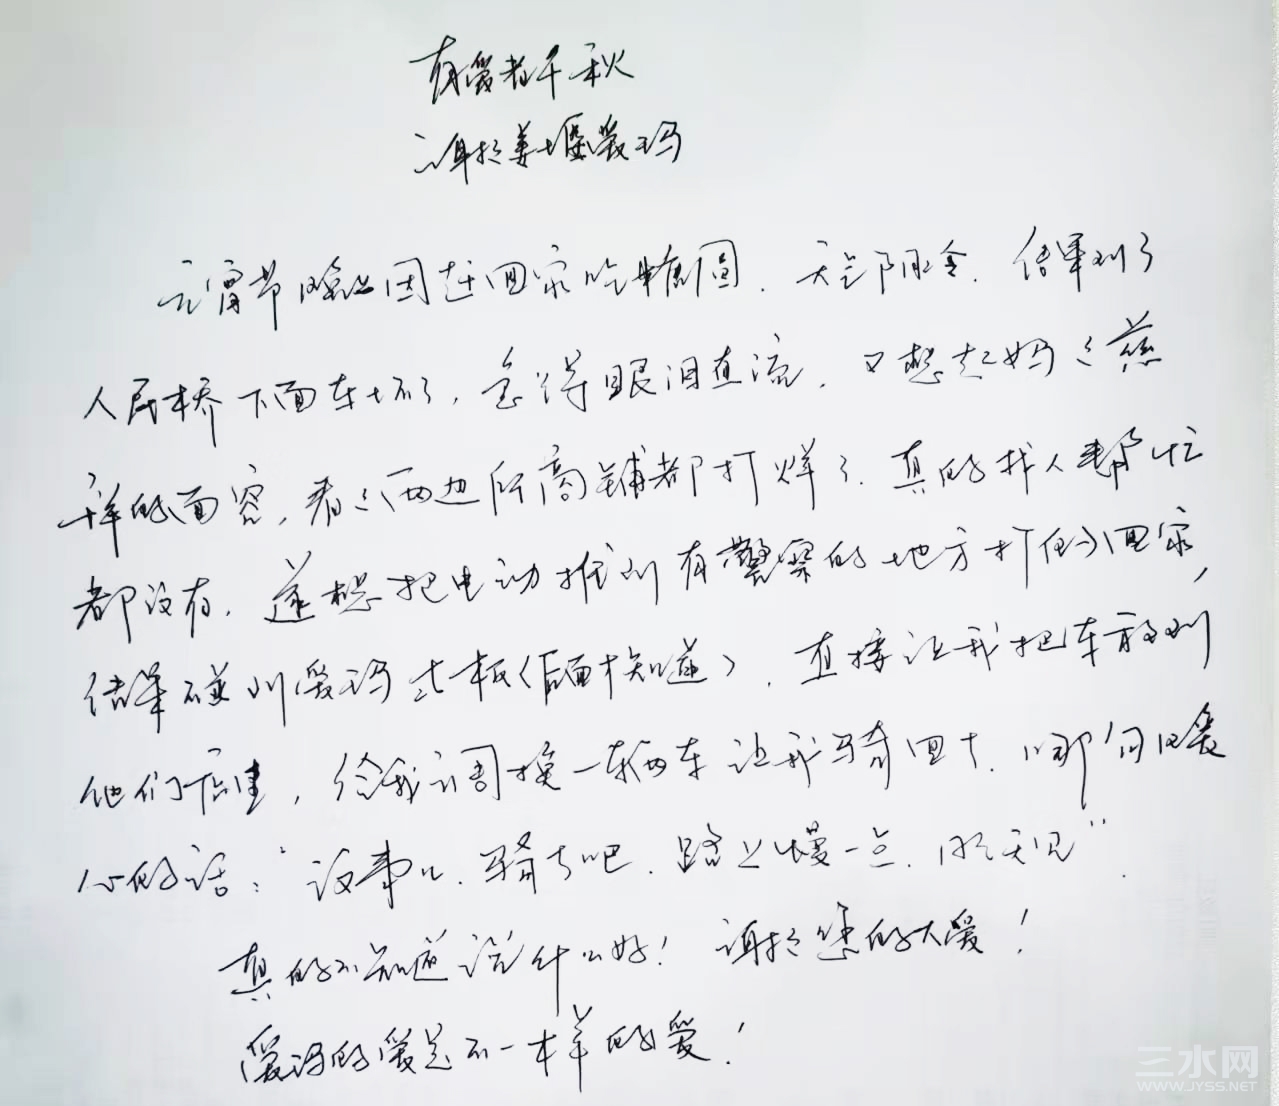 有爱者千秋
谢于姜堰爱玛
元宵节晚上因赶回家吃糖圆，天气阴冷，结果到了
人民桥下面车坏了，急得眼泪直流，又想起妈妈慈
祥的面容，看看两边所商铺都打烊了，真的找人帮忙
都没有，遂想把电动推到有警察的地方打的回家，
结果碰到爱玛老板（后面才知道），直接让我把车放到
他们店里，给我调换一辆车让我骑回去，哪句让爱
心的话：“没事儿，骑去吧，路上慢一点，明天见”。
真的不知道说什么好！谢于您的大爱！
爱玛的爱是不一样的爱！
三水网
WWW.JYSS.NET